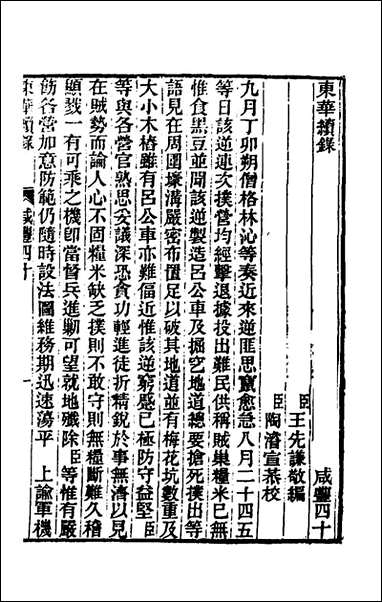 東華續錄　咸豐四十
臣王先謙敬編
臣陶濬宣恭校
九月丁卯朔僧格林沁等奏近來逆匪思竄愈急八月二十四五
等日該逆連次撲營均經擊退據投出難民供稱賊巢糧米已無
惟食黑豆並聞該逆製造呂公車及掘穵地道總要搶死撲出等
語見在周圍壕溝嚴密布置足以破其地道並有梅花坑數重及
大小木樁雖有呂公車亦難偪近惟該逆窮蹙已極防守益堅臣
等與各營官熟思妥議深恐貪功輕進徒折精銳於事無濟以見
在賊勢而論人心不固糧米缺乏撲則不敢守則無糧斷難久稽
顯戮一有可乘之機卽當督兵進剿可望就地殲除臣等惟有嚴
飭各營加意防範仍隨時設法圖維務期迅速蕩平　上諭軍機
東華續錄　咸豐四十　一